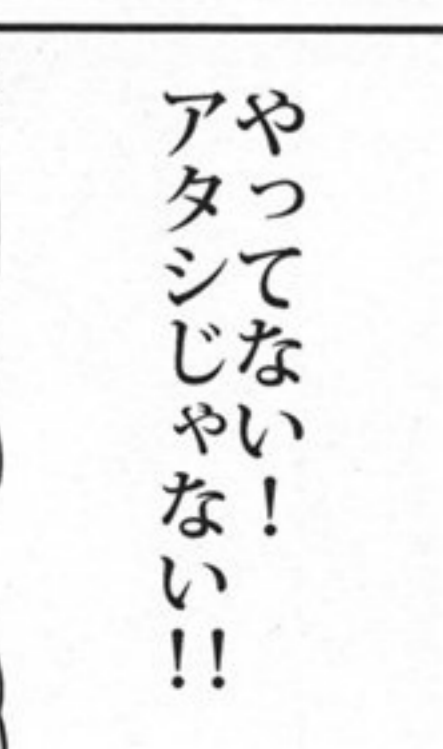 やってない！
アタシじゃない!!